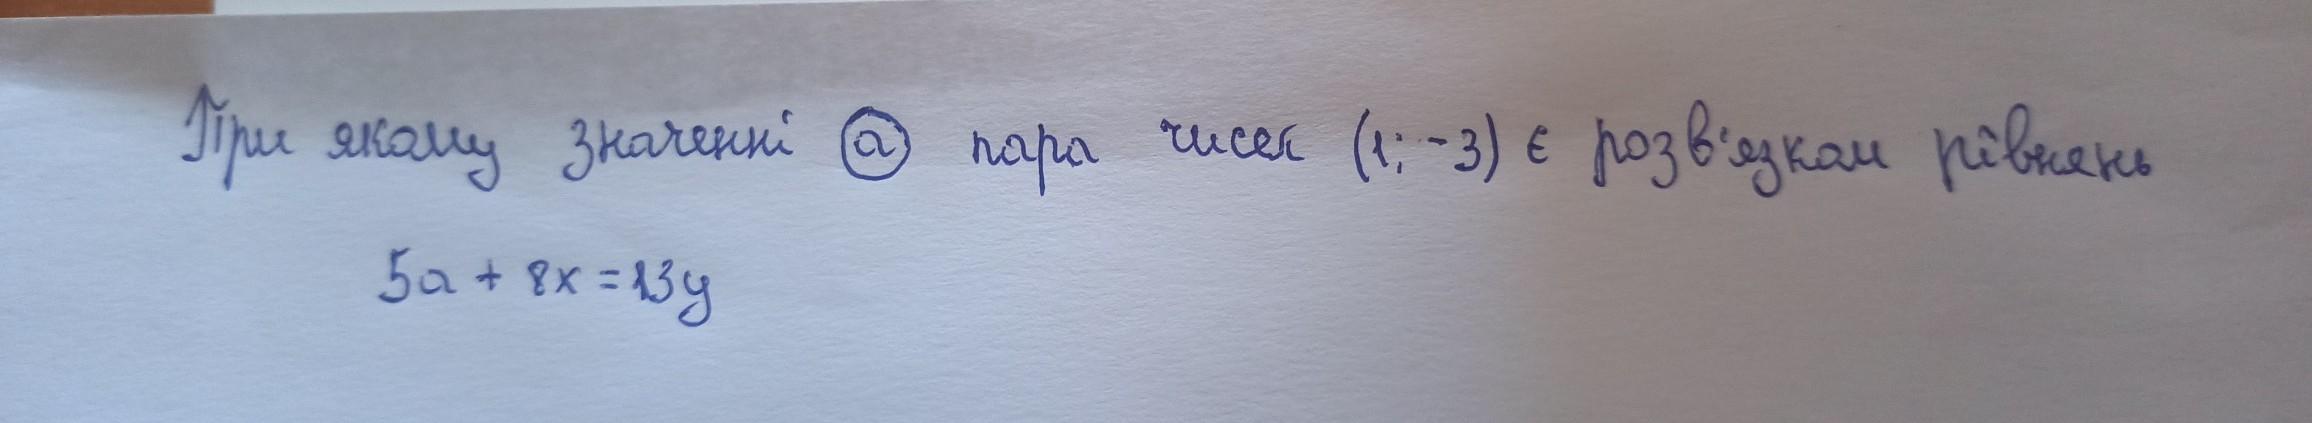 При якому значенні а пара чисел (1; -3) є розв'язком рівнянь
5а + 8х = 13у